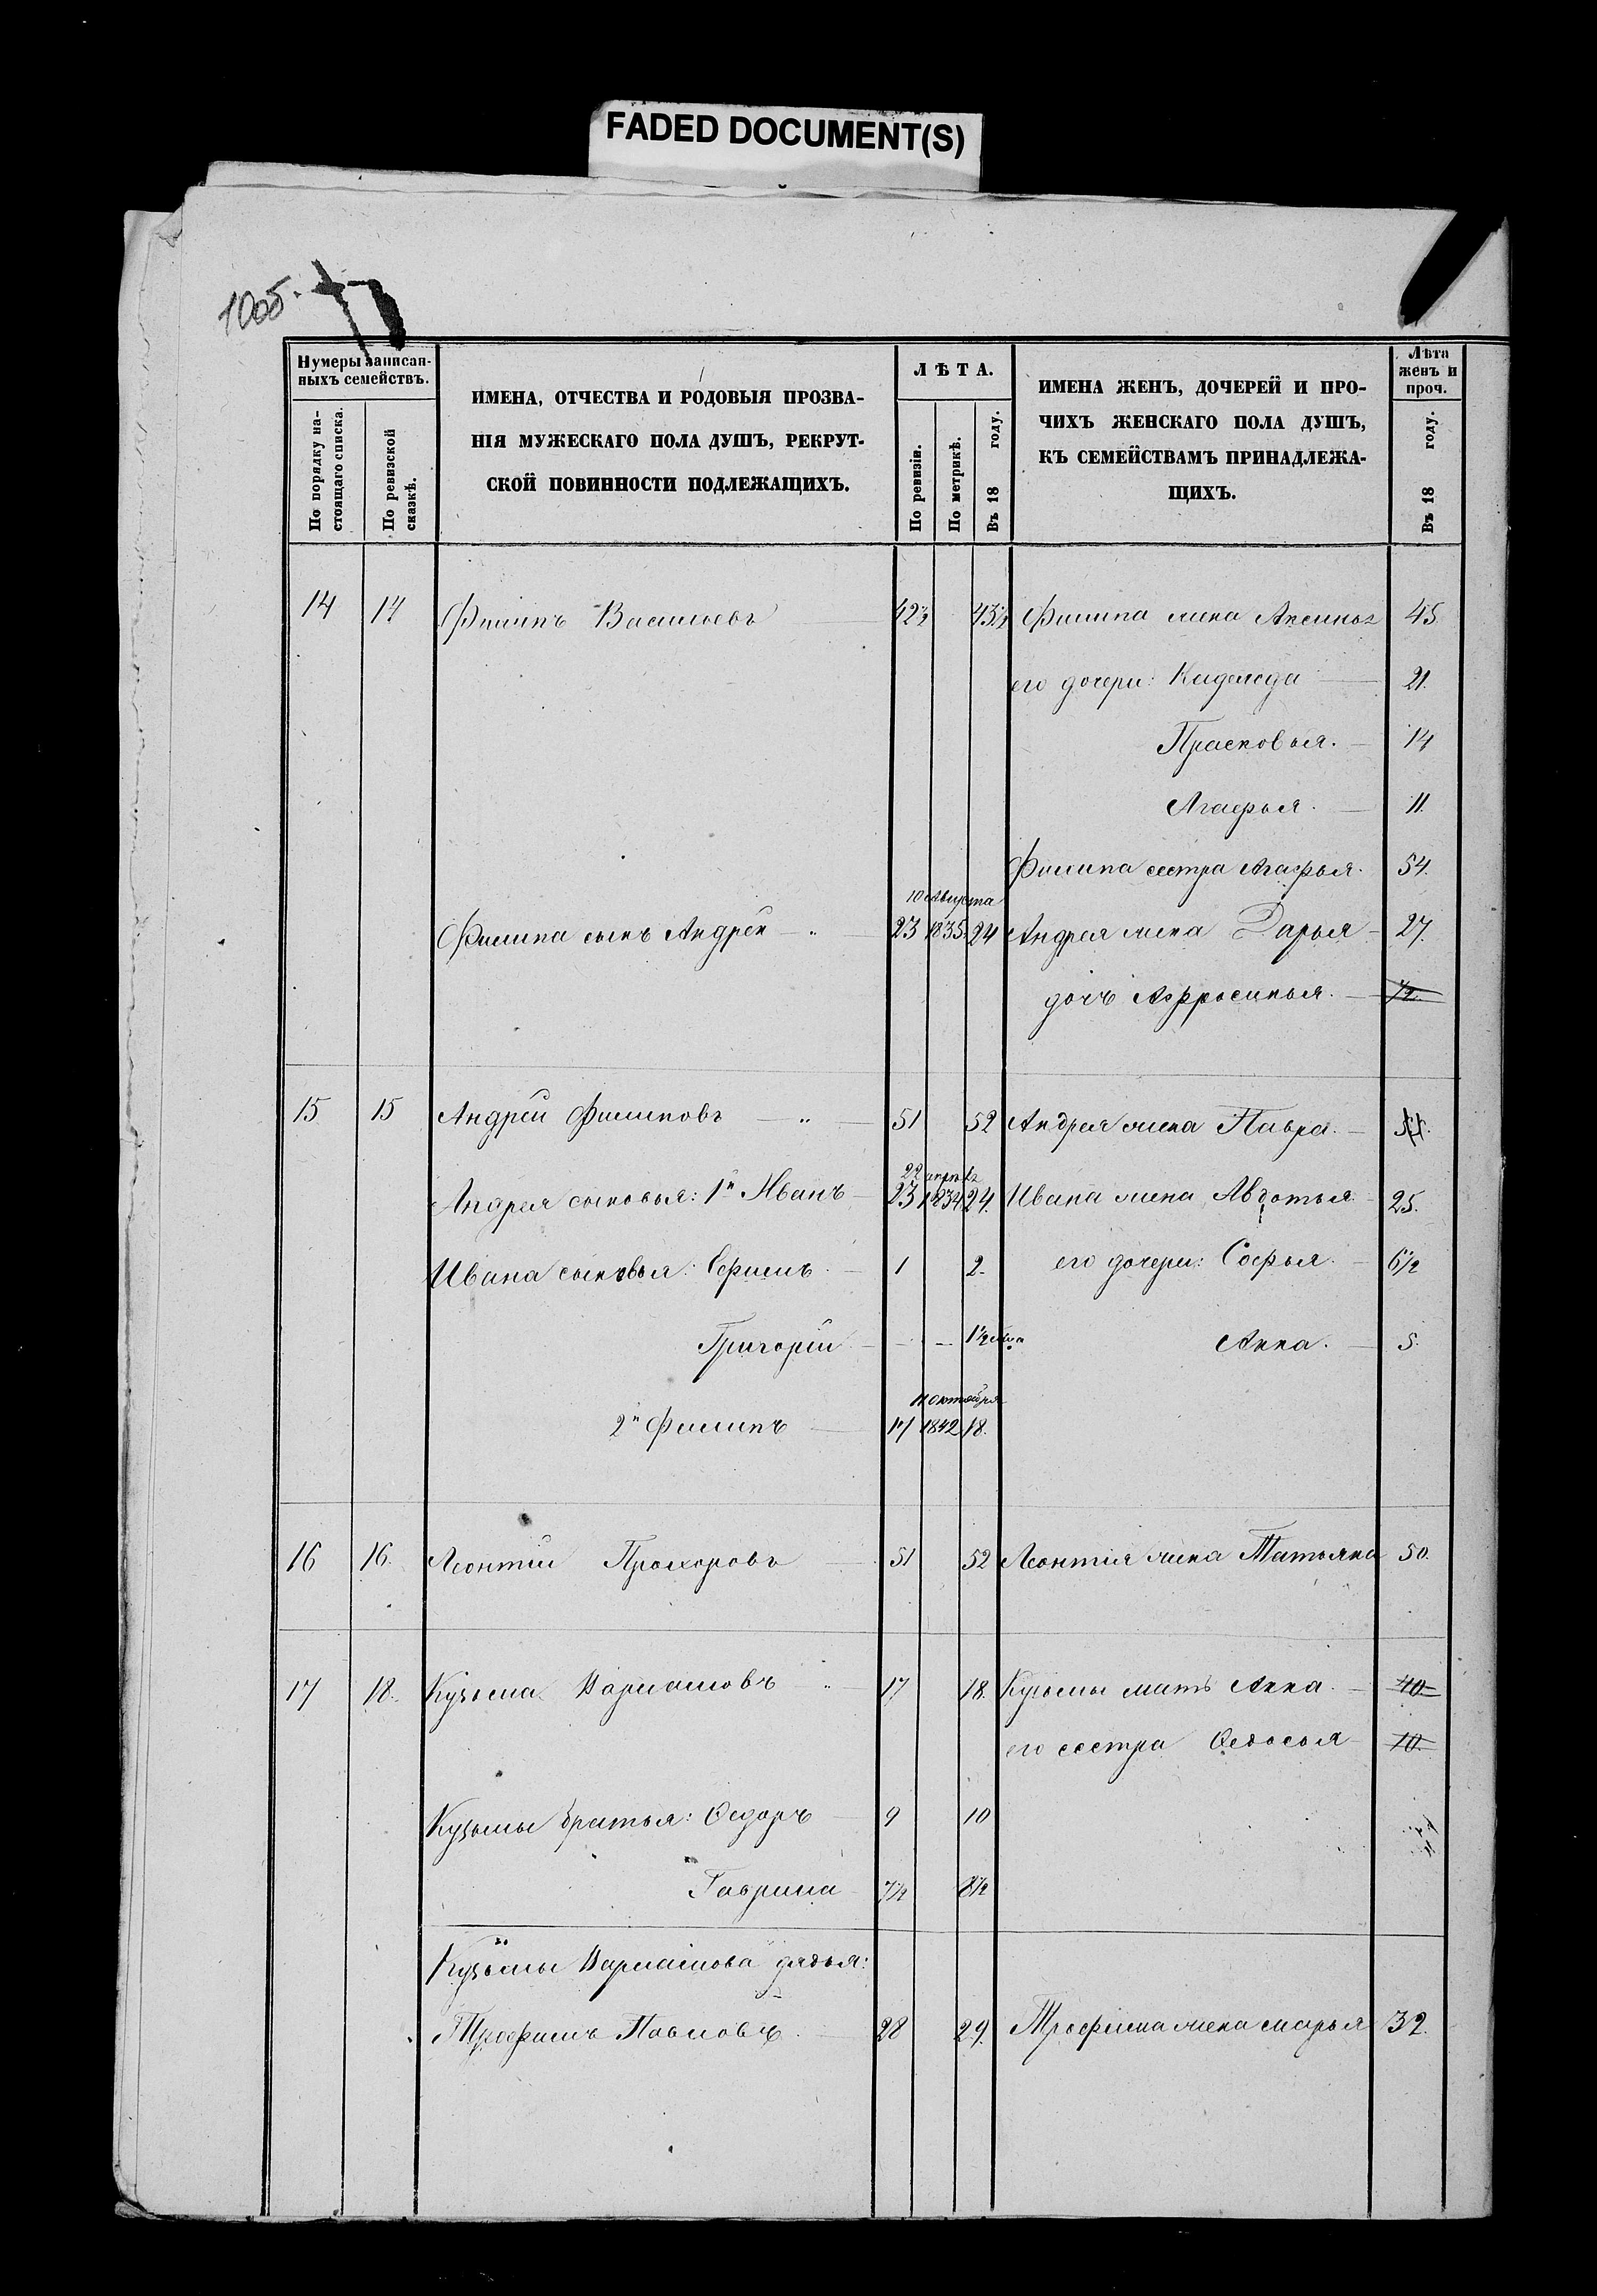 FADED DOCUMENT(S)
10об.
Нумеры записан-
ныхъ семействъ.
По порядку на-
стоящаго списка.
По ревизской
сказкѣ.
ИМЕНА, ОТЧЕСТВА И РОДОВЫЯ ПРОЗВА-
НІЯ МУЖЕСКАГО ПОЛА ДУШЪ, РЕКРУТ-
СКОЙ ПОВИННОСТИ ПОДЛЕЖАЩИХЪ.
ЛѢТА.
По ревизіи.
По метрикѣ.
Въ 18 году.
ИМЕНА ЖЕНЪ, ДОЧЕРЕЙ И ПРО-
ЧИХЪ ЖЕНСКАГО ПОЛА ДУШЪ,
КЪ СЕМЕЙСТВАМЪ ПРИНАДЛЕЖА-
ЩИХЪ.
Лѣта
женъ и
проч.
Въ 18 году.
14 14 Филипъ Васильевъ 42½ 43½ Филипа жена Аксинья 45
его дочери: 21.
Прасковья. 14
Агафья. 11.
Филипа сестра Агафья. 54.
10 Августа
Филипа сынъ Андрей 23 1835 24 Андрея жена Дарья 27.
дочь Афросинья. ½
15 15 Андрей Филиповъ 51 52 Андрея жена
22 апрѣля
Андрея сыновья: 1й Иванъ 23 1834 24. Ивана жена Авдотья 25.
Ивана сыновья: Ефимъ 1 2. его дочери: Софья. 6½
Григорій — — 1½ Анна. 5.
11 октября
2й Филипъ 17 1842 18.
16 16. Леонтій Прохоровъ 51 52 Леонтія жена Татьяна 50.
17 18. Кузьма Варламовъ 17 18. Кузьмы мать Анна. 40
его сестра Ѳедосья 10.
Кузьмы братья: Ѳедоръ 9 10
Гаврила 7½ 8½
Кузьмы Варламова дядья:
Трофимъ Павловъ. 28 29. Трофима жена Марья 32.